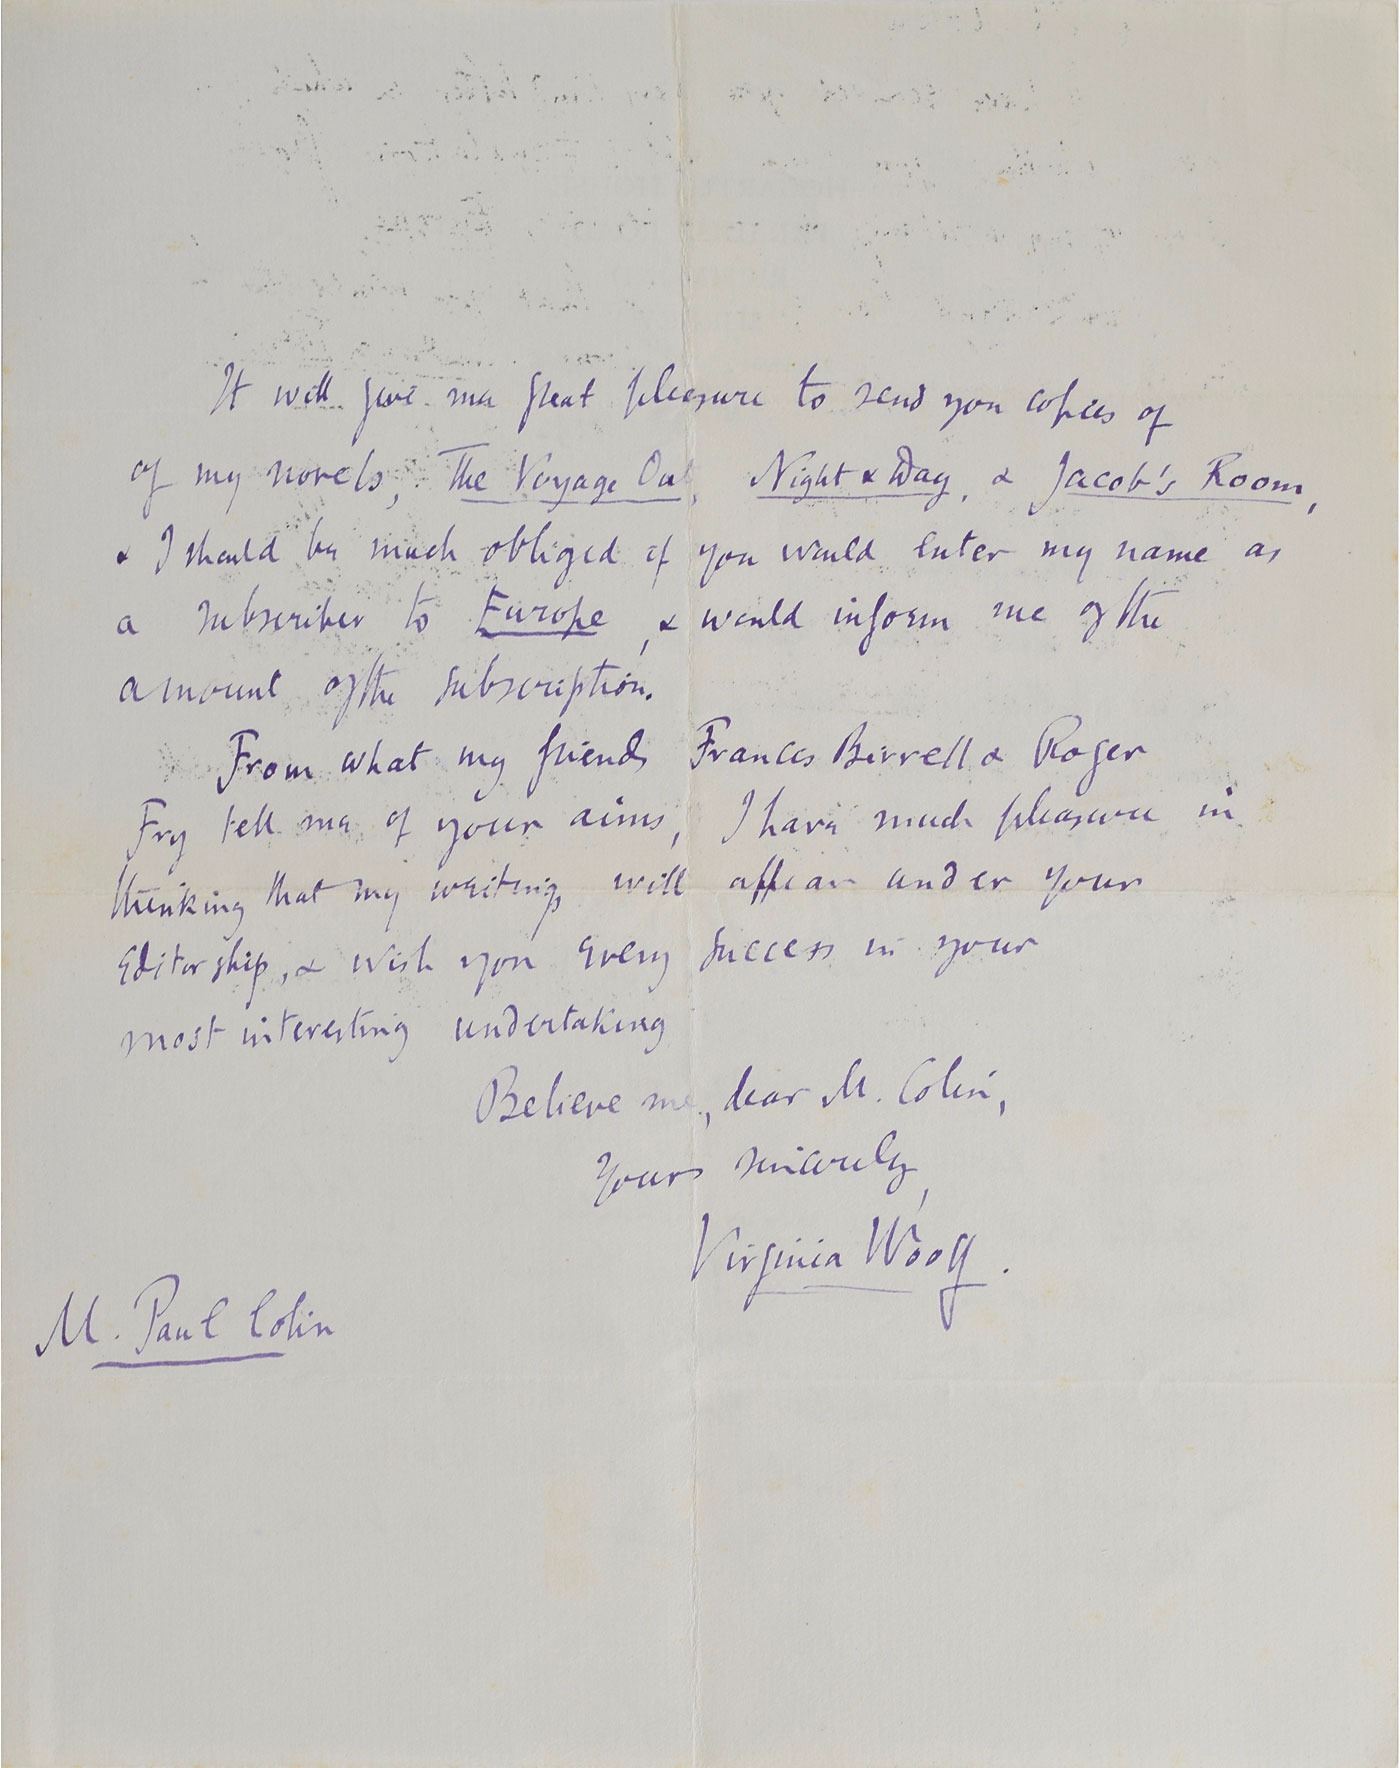 It will give me great pleasure to send you copies of
of my novels, The Voyage Out, Night & Day, & Jacob's Room,
& I should be much obliged if you would enter my name as
a subscriber to Europe, & would inform me of the
amount of the subscription.
From what my friends Frances Birrell & Roger
Fry tell me of your aims, I have much pleasure in
thinking that my writing will appear under your
Editorship, & wish you every success in your
most interesting undertaking
Believe me, dear M. Colin,
Yours sincerely,
Virginia Woolf.
M. Paul Colin